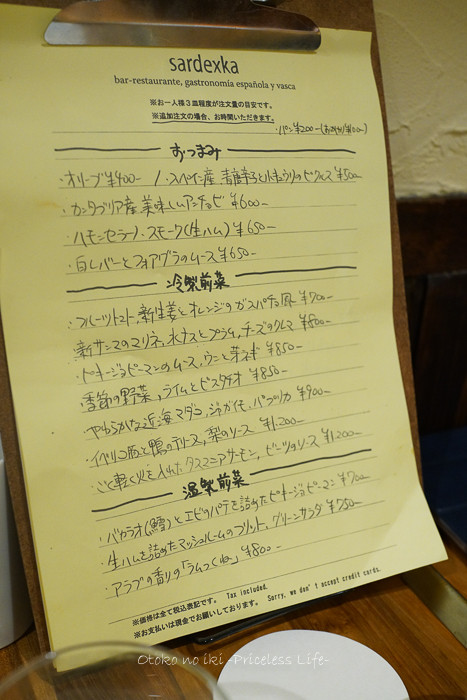 sardexka
bar-restaurante, gastronomía española y vasca
※お一人様3皿程度が注文量の目安です。
※追加注文の場合、お時間いただきます。
・パン¥200-(おかわり¥100-)
おつまみ
・オリーブ¥400- / ・スペイン産、青唐辛子と小キュウリのピクルス ¥500-
・カンタブリア産 美味しいアンチョビ ¥600-
・ハモンセラーノ・スモーク(生ハム) ¥650-
・白レバーとフォアグラのムース ¥650-
冷製前菜
・フルーツトマト、新生姜とオレンジのガスパチョ風 ¥700-
新サンマのマリネ、水ナスとプラム、チーズのクレマ ¥800-
・ピキージョピーマンのムース、ウニと芽ネギ ¥850-
季節の野菜、ライムとピスタチオ ¥850-
やわらかな近海マダコ、ジャガイモ、パプリカ ¥900-
・イベリコ豚と鴨のテリーヌ、梨のソース ¥1,200-
・ごく軽く火を入れたタスマニアサーモン、ビーツのソース ¥1,200-
温製前菜
・バカラオ(鱈)とエビのパテを詰めたピキージョピーマン ¥700-
生ハムを詰めたマッシュルームのフリット、グリーンサラダ ¥750-
・アラブの香りの「ラムつくね」 ¥800-
※価格は全て税込表記です。 Tax included.
※お支払いは現金でお願いしております。 Sorry, we don't accept credit cards.
Otoko no iki -Priceless Life-